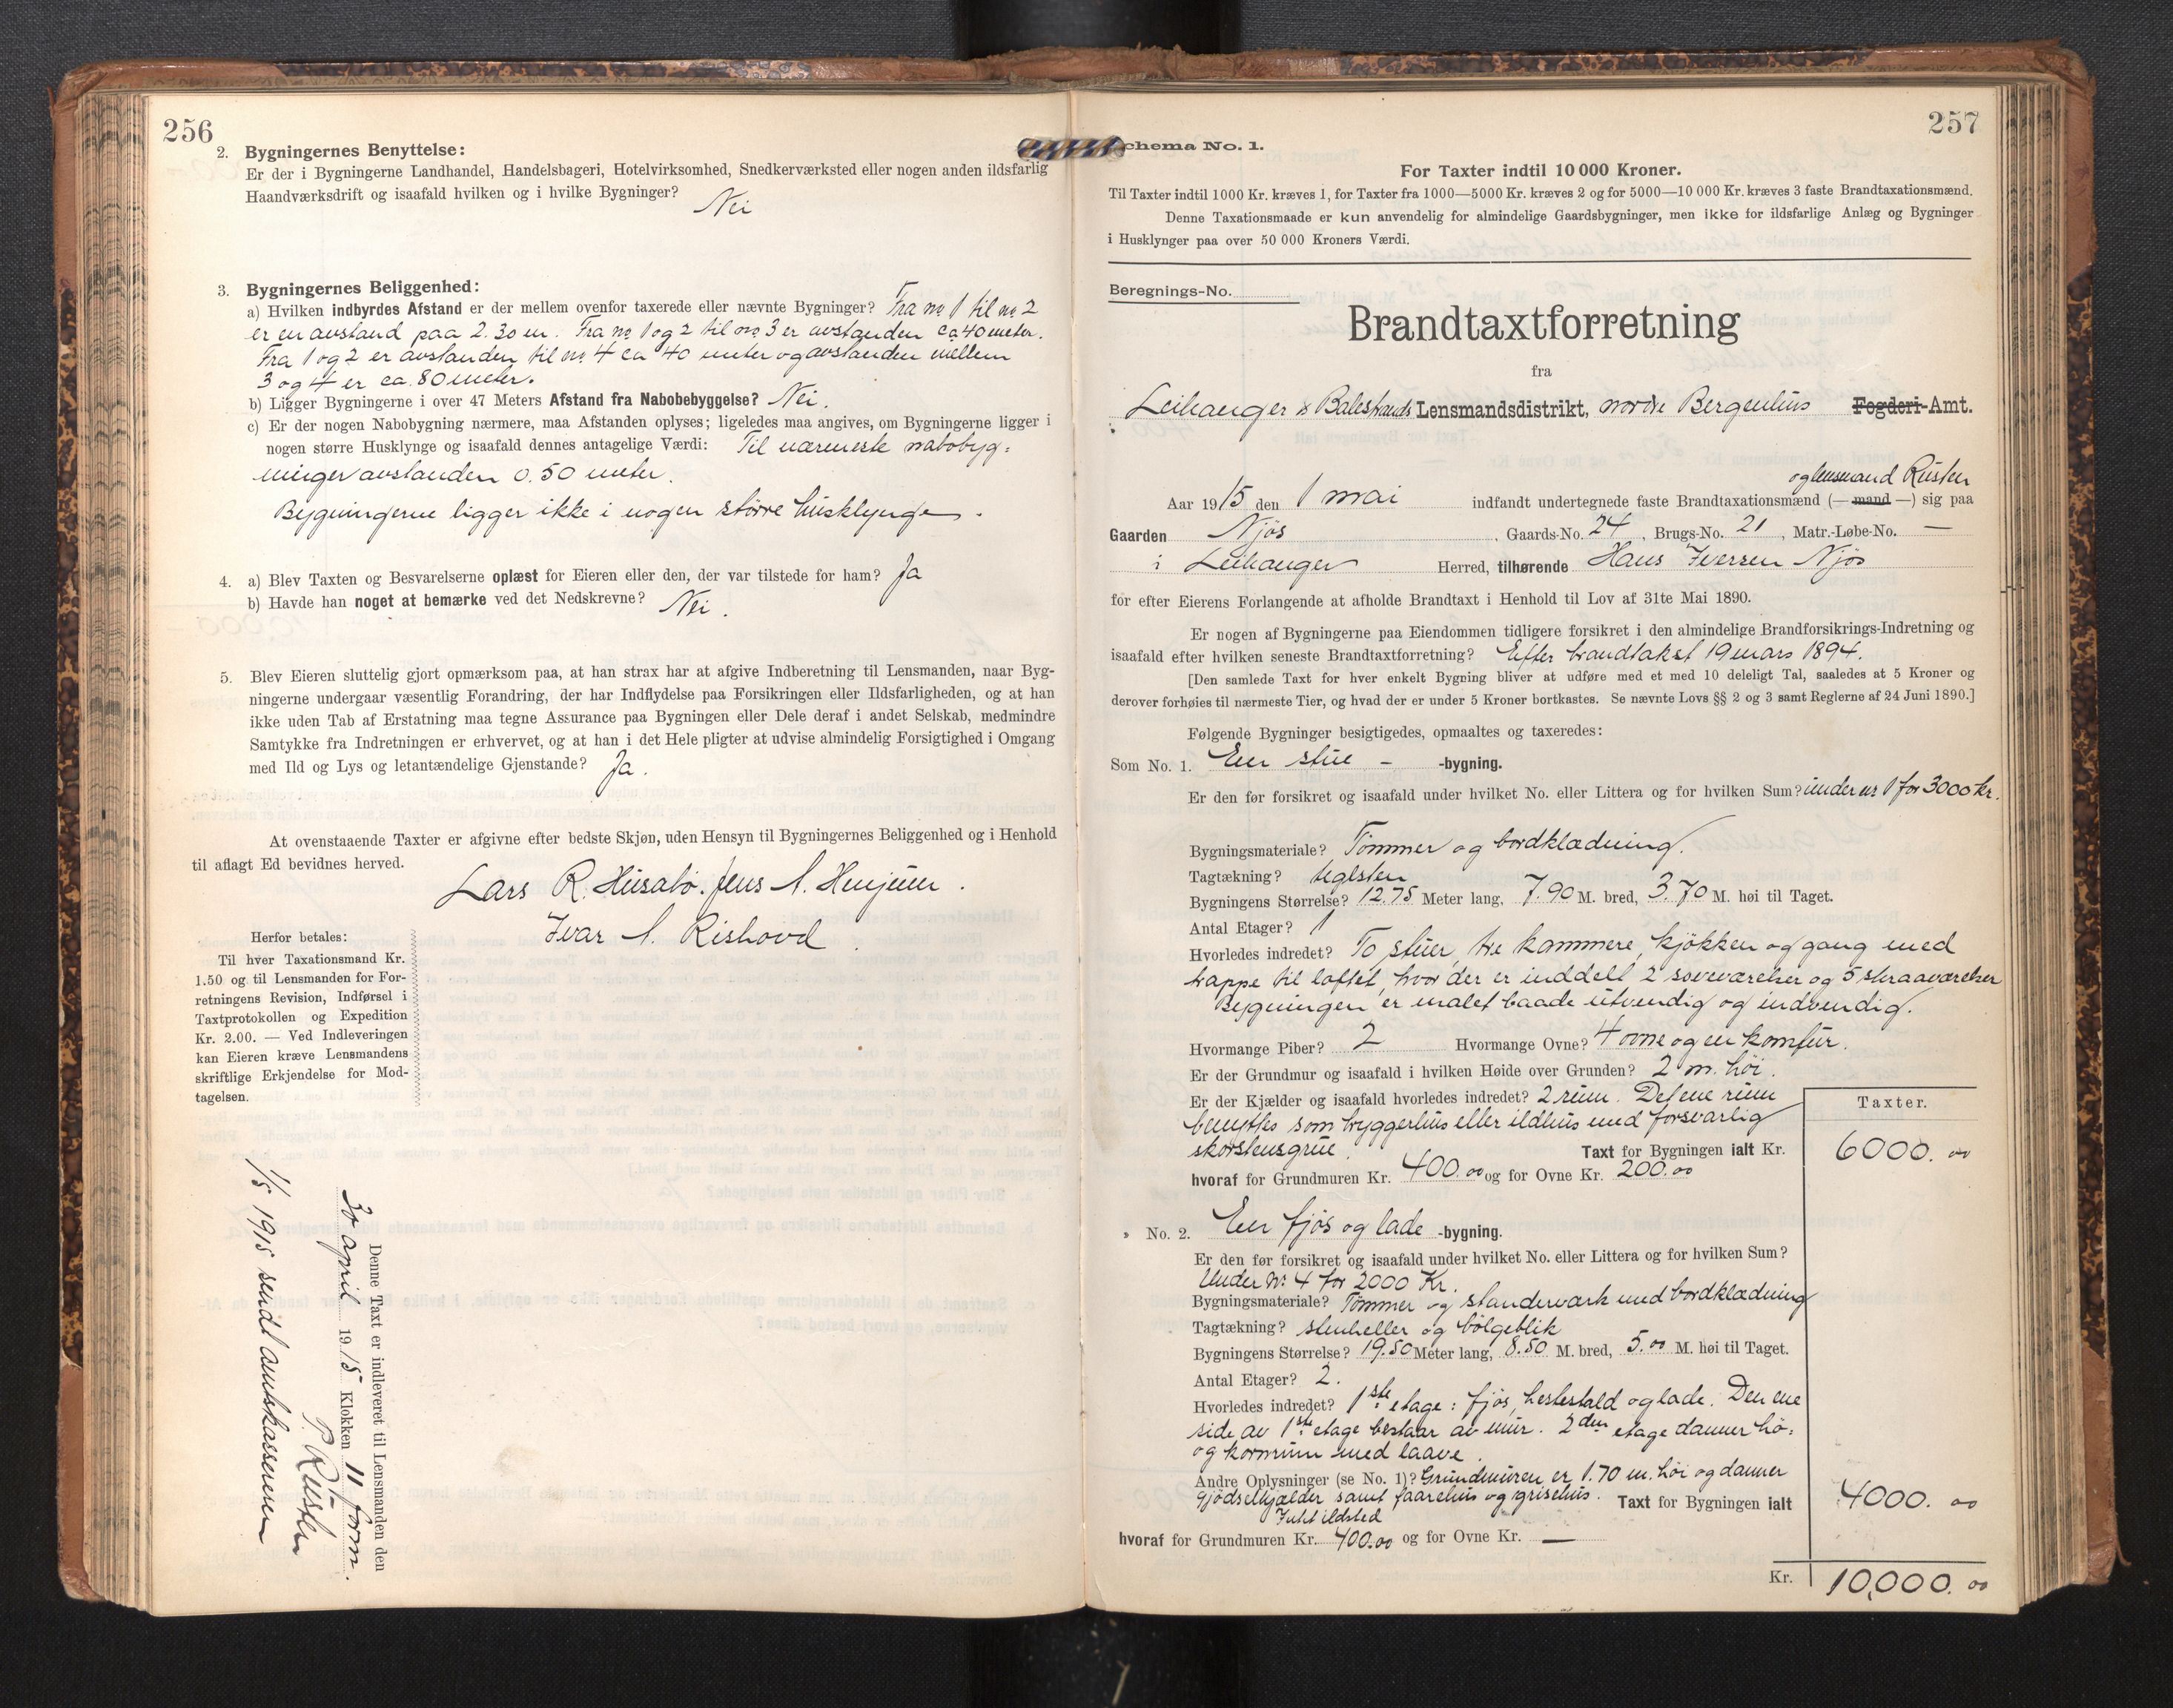 256
2. Bygningernes Benyttelse:
Er der i Bygningerne Landhandel, Handelsbageri, Hotelvirksomhed, Snedkerværksted eller nogen anden ildsfarlig
Haandværksdrift og isaafald hvilken og i hvilke Bygninger?
Nei
3. Bygningernes Beliggenhed:
a) Hvilken indbyrdes Afstand er der mellem ovenfor taxerede eller nævnte Bygninger? Fra no 1 til no 2
er en avstand paa 2.30 m. Fra no 1 og 2 til no 3 er avstanden ca 40 meter.
Fra 1 og 2 er avstanden til no 4 ca 40 meter og avstanden mellem
3 og 4 er ca. 80 meter.
b) Ligger Bygningerne i over 47 Meters Afstand fra Nabobebyggelse? Nei.
c) Er der nogen Nabobygning nærmere, maa Afstanden oplyses; ligeledes maa angives, om Bygningerne ligger i
nogen større Husklynge og isaafald dennes antagelige Værdi: Til nærmeste nabobyg=
ninger avstanden 0.50 meter.
Bygningerne ligger ikke i nogen större husklynge.
4. a) Blev Taxten og Besvarelserne oplæst for Eieren eller den, der var tilstede for ham? Ja
b) Havde han noget at bemærke ved det Nedskrevne? Nei.
5. Blev Eieren sluttelig gjort opmærksom paa, at han strax har at afgive Indberetning til Lensmanden, naar Byg-
ningerne undergaar væsentlig Forandring, der har Indflydelse paa Forsikringen eller Ildsfarligheden, og at han
ikke uden Tab af Erstatning maa tegne Assurance paa Bygningen eller Dele deraf i andet Selskab, medmindre
Samtykke fra Indretningen er erhvervet, og at han i det Hele pligter at udvise almindelig Forsigtighed i Omgang
med Ild og Lys og letantændelige Gjenstande? Ja.
At ovenstaaende Taxter er afgivne efter bedste Skjøn, uden Hensyn til Bygningernes Beliggenhed og i Henhold
til aflagt Ed bevidnes herved.
Lars R. Husabö. Jens A. Henjum.
Ivar A. Rishovd.
Herfor betales:
Til hver Taxationsmand Kr.
1.50 og til Lensmanden for For-
retningens Revision, Indførsel i
Taxtprotokollen og Expedition
Kr. 2.00. — Ved Indleveringen
kan Eieren kræve Lensmandens
skriftlige Erkjendelse for Mod-
tagelsen.
Denne Taxt er indleveret til Lensmanden den
30 april 1915 Klokken 11 form.
P. Rusten
1/5 1915 sendt amtskassereren
257
chema No. 1.
For Taxter indtil 10 000 Kroner.
Til Taxter indtil 1000 Kr. kræves 1, for Taxter fra 1000—5000 Kr. kræves 2 og for 5000—10 000 Kr. kræves 3 faste Brandtaxationsmænd.
Denne Taxationsmaade er kun anvendelig for almindelige Gaardsbygninger, men ikke for ildsfarlige Anlæg og Bygninger
i Husklynger paa over 50 000 Kroners Værdi.
Beregnings-No.
Brandtaxtforretning
fra
Leikanger & Balestrands Lensmandsdistrikt, nordre Bergenhus Fogderi-Amt.
og lensmand Rusten
Aar 1915 den 1 mai indfandt undertegnede faste Brandtaxationsmænd (— mand —) sig paa
Gaarden Njös, Gaards-No. 24, Brugs-No. 21, Matr.-Løbe-No. —
i Leikanger Herred, tilhørende Hans Iversen Njös
for efter Eierens Forlangende at afholde Brandtaxt i Henhold til Lov af 31te Mai 1890.
Er nogen af Bygningerne paa Eiendommen tidligere forsikret i den almindelige Brandforsikrings-Indretning og
isaafald efter hvilken seneste Brandtaxtforretning? Efter brandtakst 19 mars 1894.
[Den samlede Taxt for hver enkelt Bygning bliver at udføre med et med 10 deleligt Tal, saaledes at 5 Kroner og
derover forhøies til nærmeste Tier, og hvad der er under 5 Kroner bortkastes. Se nævnte Lovs §§ 2 og 3 samt Reglerne af 24 Juni 1890.]
Følgende Bygninger besigtigedes, opmaaltes og taxeredes:
Som No. 1. Een stue - -bygning.
Er den før forsikret og isaafald under hvilket No. eller Littera og for hvilken Sum? under no 1 for 3000 kr.
Bygningsmateriale? Tömmer og bordklædning.
Tagtækning? teglsten
Bygningens Størrelse? 12.75 Meter lang, 7.90 M. bred, 3.70 M. høi til Taget.
Antal Etager? 1
Hvorledes indredet? To stuer, tre kammere, kjökken og gang med
trappe til loftet, hvor der er inddelt 2 soveværelser og 5 skraaværelser
Bygningen er malet baade utvendig og indvendig.
Hvormange Piber? 2 Hvormange Ovne? 4 ovne og en komfur.
Er der Grundmur og isaafald i hvilken Høide over Grunden? 2 m. höi.
Er der Kjælder og isaafald hvorledes indredet? 2 rum. Det ene rum
benyttes som bryggerhus eller ildhus med forsvarlig
skorstensgrue.
Taxt for Bygningen ialt Kr.
Taxter.
6000.00
hvoraf for Grundmuren Kr. 400.00 og for Ovne Kr. 200.00
" No. 2. Een fjös og lade -bygning.
Er den før forsikret og isaafald under hvilket No. eller Littera og for hvilken Sum?
Under no. 4 for 2000 Kr.
Bygningsmateriale? Tömmer og standerværk med bordklædning
Tagtækning? stenheller og bölgeblik
Bygningens Størrelse? 19.50 Meter lang, 8.50 M. bred, 5.00 M. høi til Taget.
Antal Etager? 2.
Hvorledes indredet? 1ste etage: fjös, hestestald og lade. Den ene
side av 1ste etage bestaar av mur. 2den etage danner hö=
og kornrum med laave.
Andre Oplysninger (se No. 1)? Grundmuren er 1.70 m. höi og danner
gjödselkjælder samt faarehus og grisehus.
Taxt for Bygningen ialt 4000.00
Intet ildsted
hvoraf for Grundmuren Kr. 400.00 og for Ovne Kr. —
Kr. 10,000.00